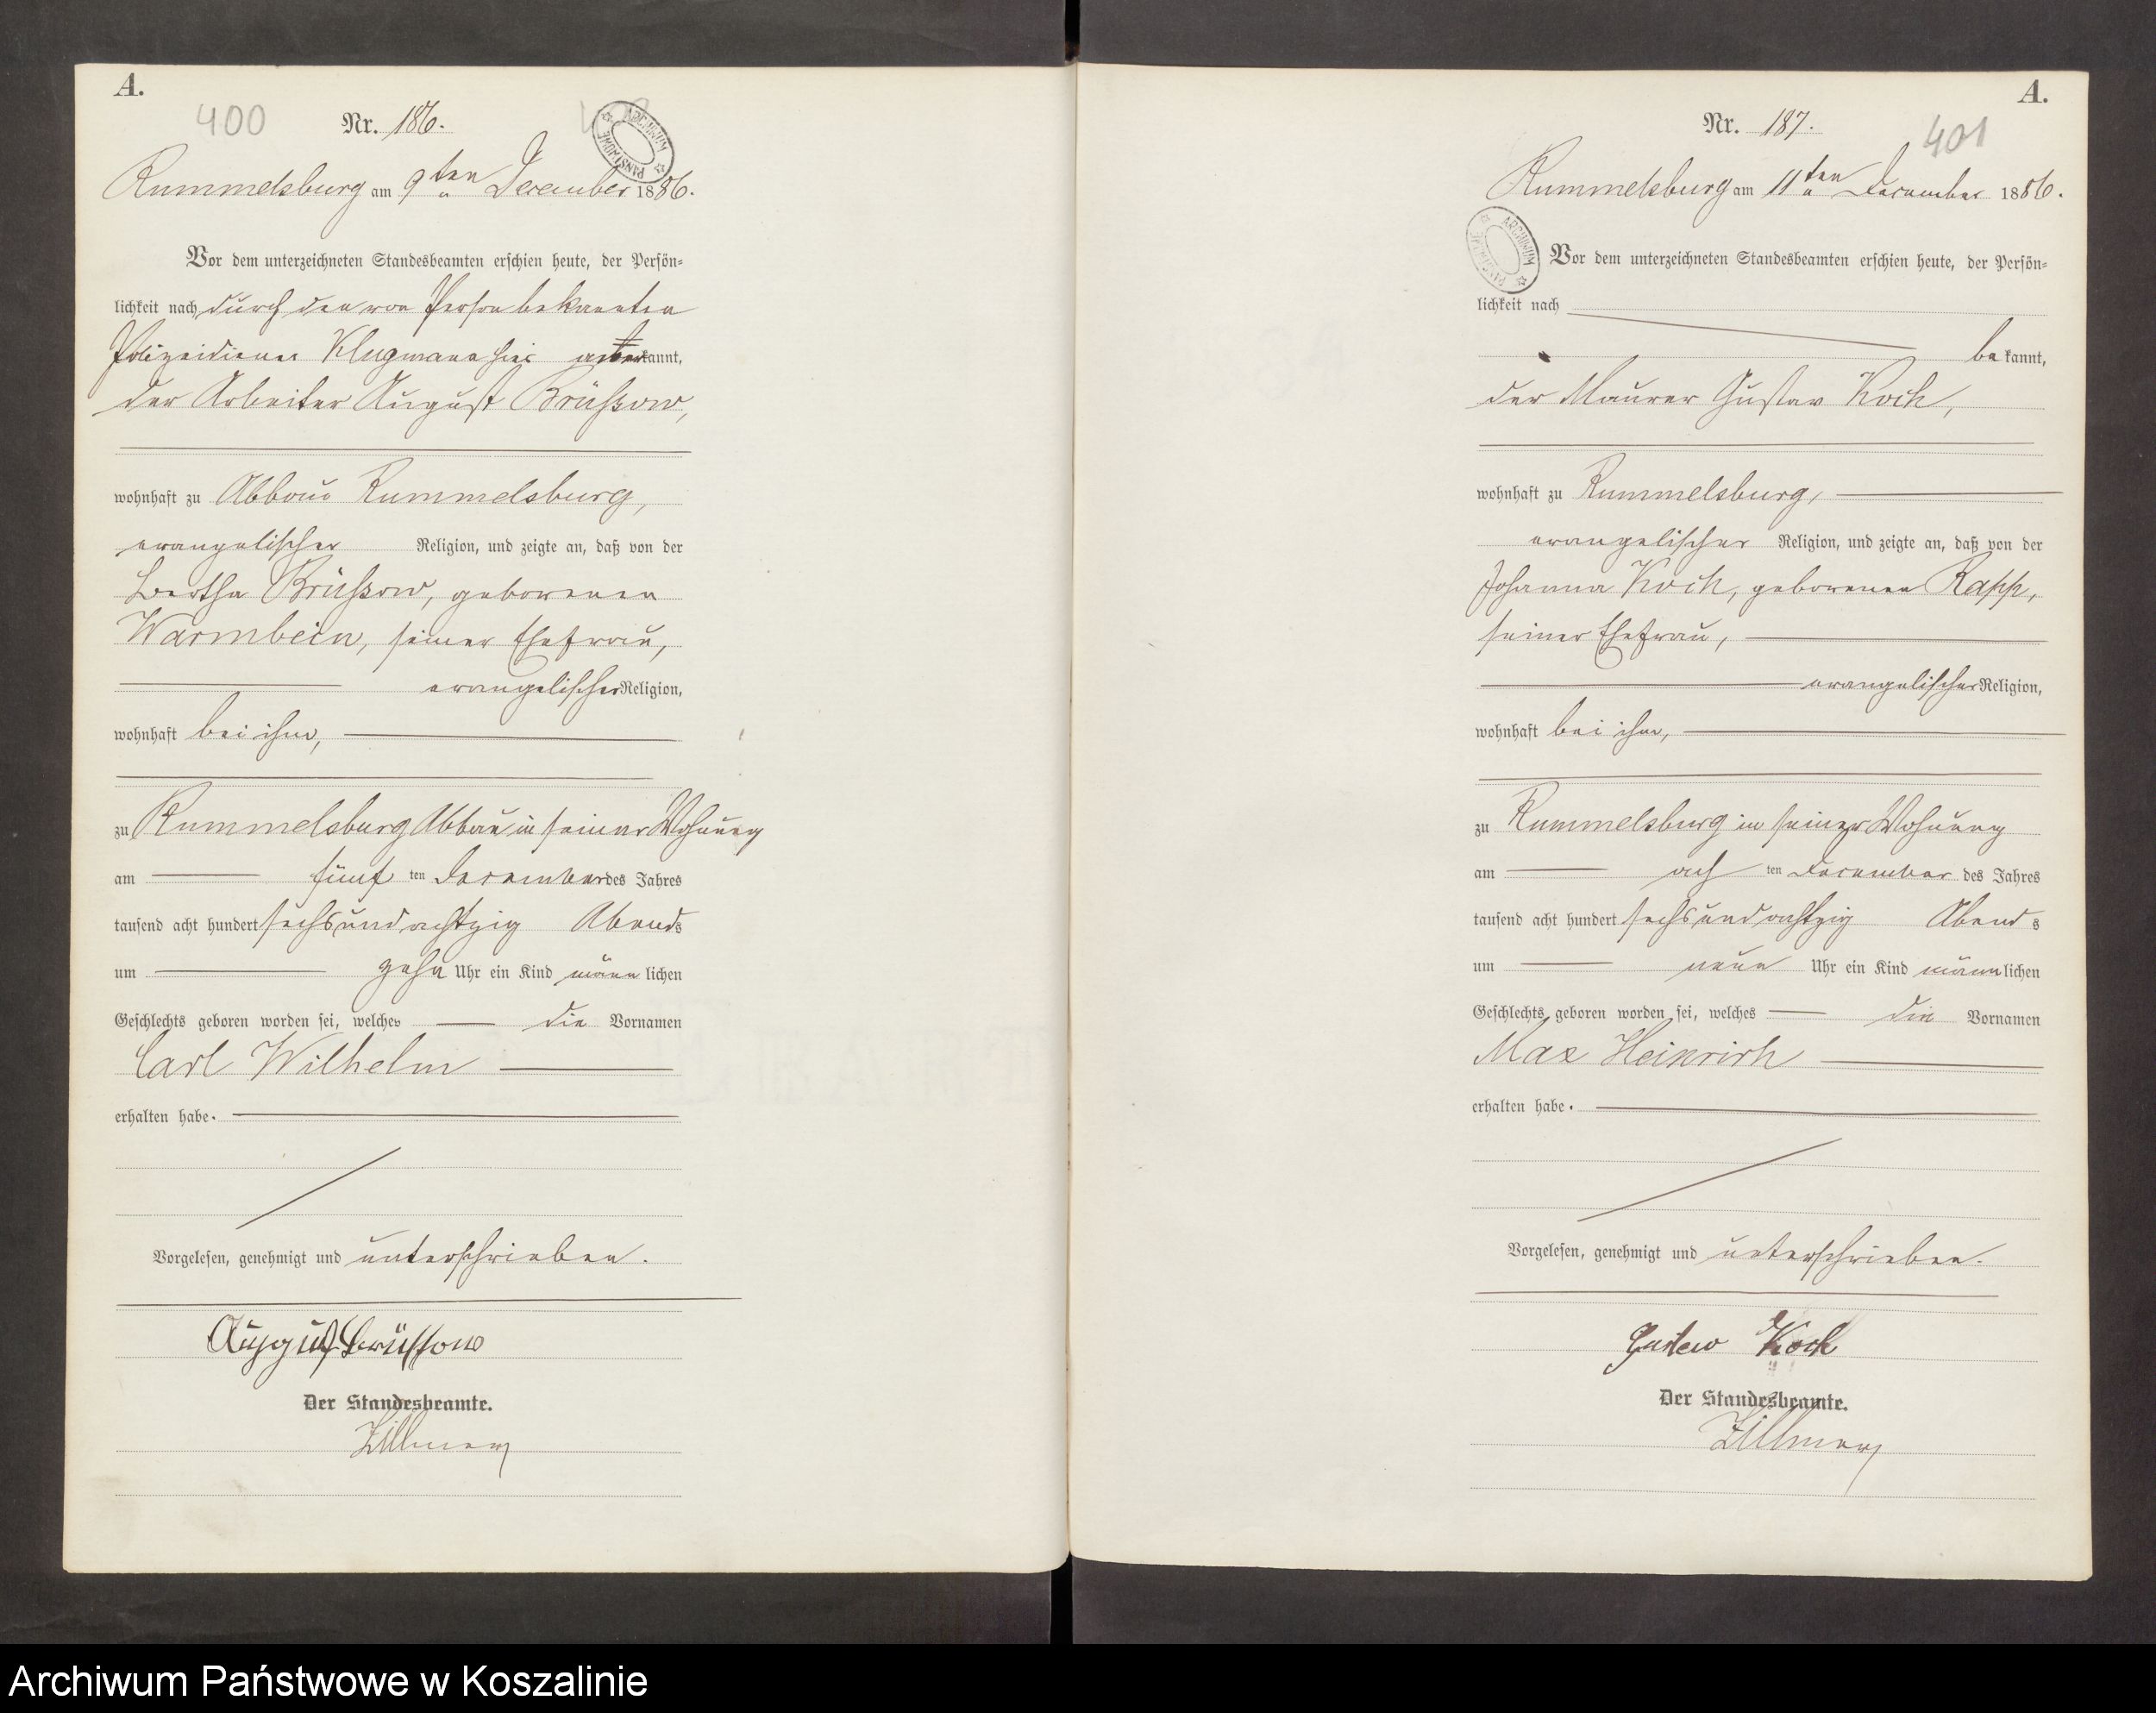 A.
400
Nr. 186.
ARCHIWUM PAŃSTWOWE
Rummelsburg am 9ten December 1886.
Vor dem unterzeichneten Standesbeamten erschien heute, der Persön-
lichkeit nach durch den von Person bekannten
Polizeidiener Klugmann hier anerkannt,
der Arbeiter August Brüssow,
wohnhaft zu Abbau Rummelsburg,
evangelischer Religion, und zeigte an, daß von der
Bertha Brüssow, geborenen
Warmbein, seiner Ehefrau,
evangelischer Religion,
wohnhaft bei ihm,
zu Rummelsburg Abbau in seiner Wohnung
am fünf ten December des Jahres
tausend acht hundert sechsundachtzig Abends
um zehn Uhr ein Kind männlichen
Geschlechts geboren worden sei, welches die Vornamen
Carl Wilhelm
erhalten habe.
Vorgelesen, genehmigt und unterschrieben.
August Brüssow
Der Standesbeamte.
Zillmer
A.
Nr. 187.
401
Rummelsburg am 11ten December 1886.
ARCHIWUM PAŃSTWOWE
Vor dem unterzeichneten Standesbeamten erschien heute, der Persön-
lichkeit nach
bekannt,
der Maurer Gustav Koch,
wohnhaft zu Rummelsburg,
evangelischer Religion, und zeigte an, daß von der
Johanna Koch, geborenen Rapp,
seiner Ehefrau,
evangelischer Religion,
wohnhaft bei ihm,
zu Rummelsburg in seiner Wohnung
am ach ten December des Jahres
tausend acht hundert sechsundachtzig Abends
um neun Uhr ein Kind männlichen
Geschlechts geboren worden sei, welches die Vornamen
Max Heinrich
erhalten habe.
Vorgelesen, genehmigt und unterschrieben.
Gustav Koch
Der Standesbeamte.
Zillmer
Archiwum Państwowe w Koszalinie